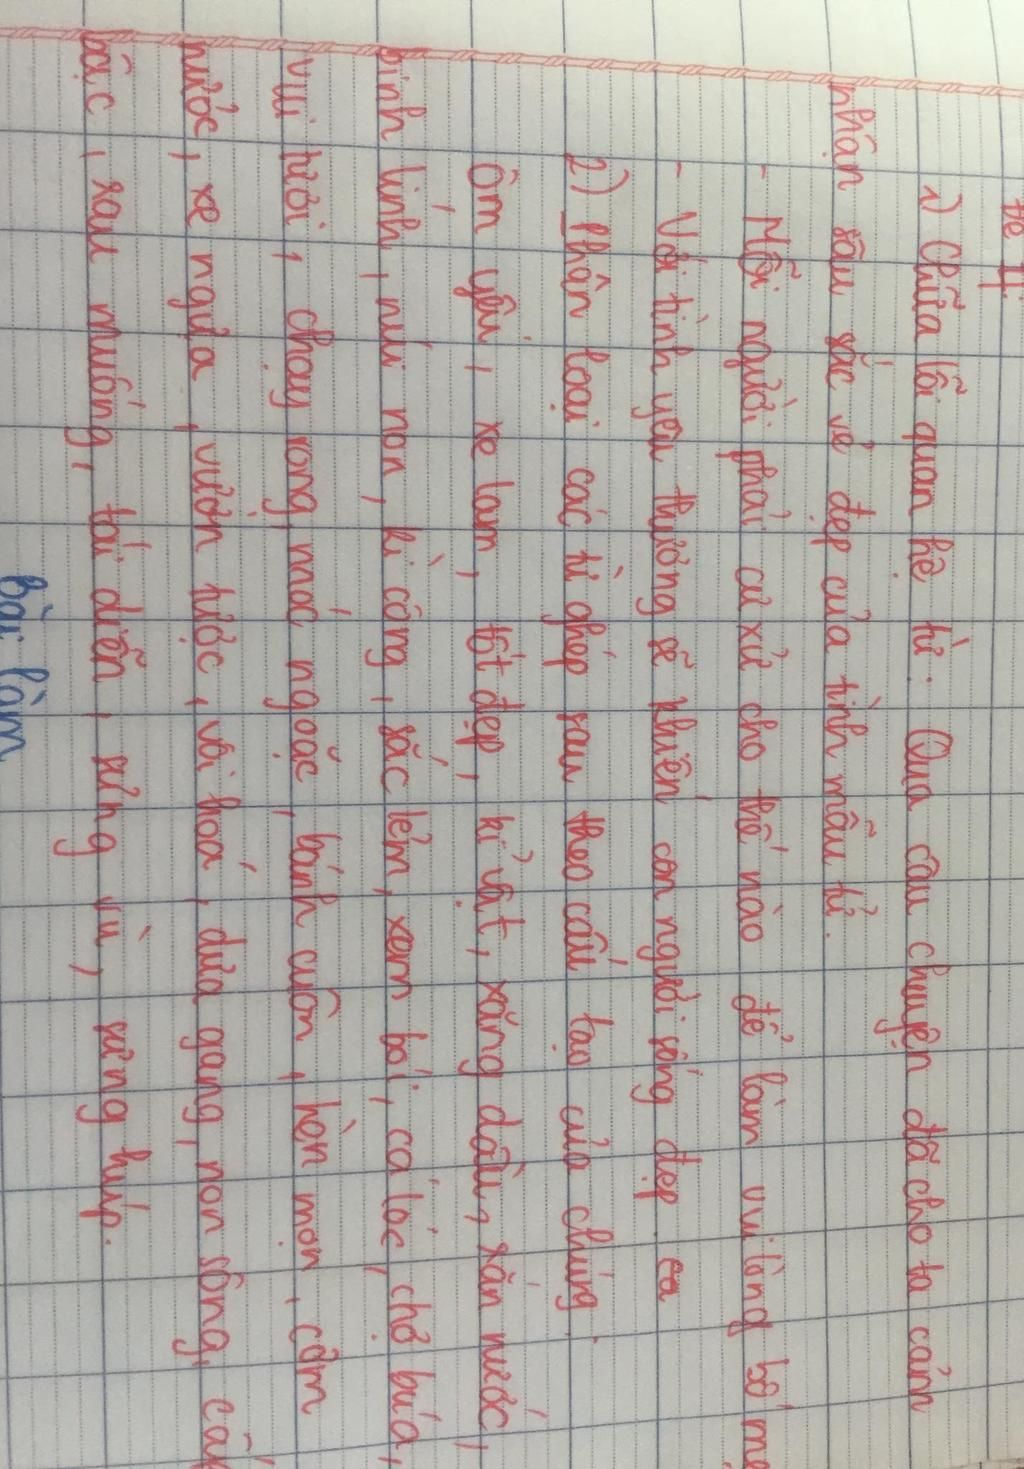 Đề I:
1) Chữa lỗi quan hệ từ: Qua câu chuyện đã cho ta cảm
nhận sâu sắc về đẹp của tình mẫu tử.
- Mỗi người phải cư xử cho thế nào để làm vui lòng bố mẹ
- Với tình yêu thương sẽ khiến con người sống đẹp
2) Phân loại các từ ghép sau theo cấu tạo của chúng:
Ốm yếu, xe lam, tốt đẹp, kỉ vật, xăng dầu, sắn nước,
binh lính, núi non, kì công, sắc lẻm, xem bói, cá lóc, chợ búa,
vui tươi, chạy rong, móc ngoặc, bánh cuốn, hèn mọn, cơm
nước, xe ngựa, vườn tược, vải hoa, dưa gang, non sông, cấp
bậc, rau muống, tái diễn, sừng vù, sưng húp.
Bài làm